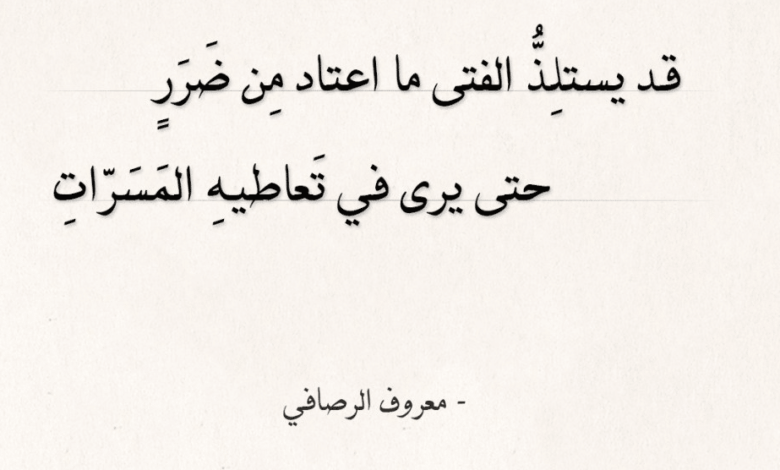 قد يستلِذُّ الفتى ما اعتاد مِن ضَرَرٍ
حتى يرى في تَعاطيهِ المَسَرّاتِ
- معروف الرصافي